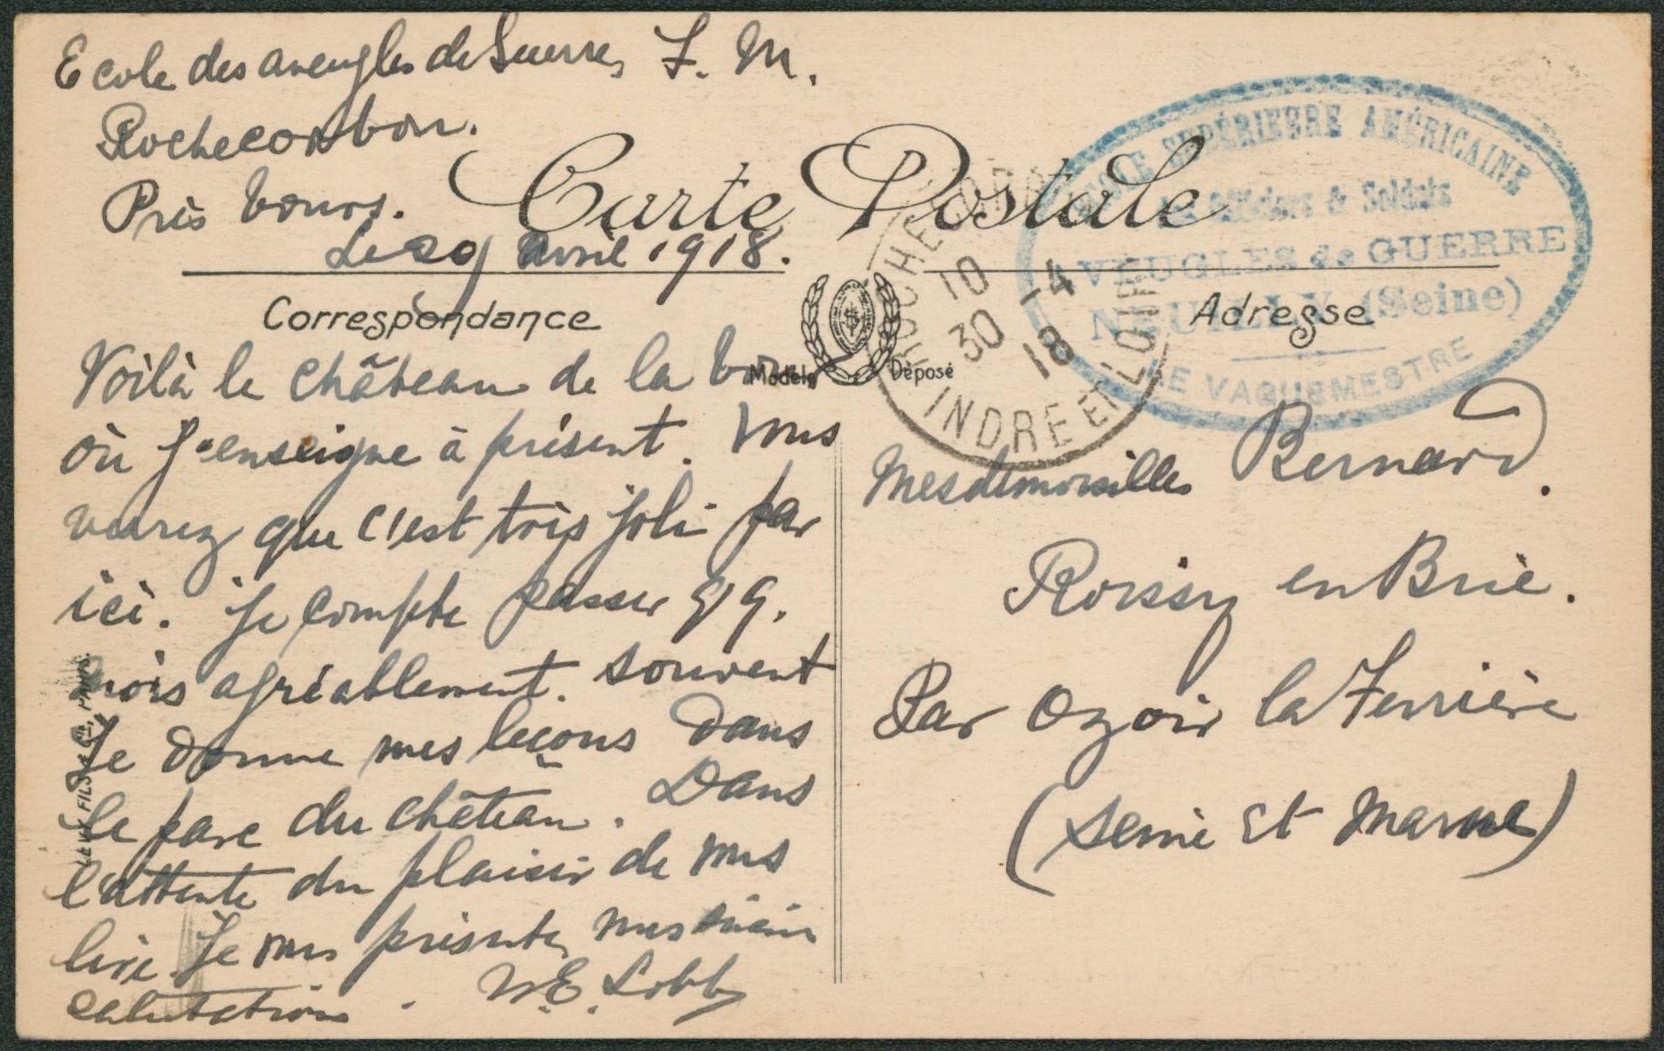 Ecole des aveugles de Guerre, F. M.
Rochecorbon.
Près Tours.
Le 29 avril 1918.
Carte Postale
Correspondance
Adresse
Modèle Déposé
Voilà le château de la
où J'enseigne à présent. Vous
verrez que c'est très joli par
ici. Je compte passer qlq.
mois agréablement. Souvent
Je donne mes leçons dans
le parc du château. Dans
l'attente du plaisir de vous
lire Je vous présente, mes
salutations. W.E. Lobb
Mesdemoiselles Bernard.
Roissy en Brie.
Par Ozoir la Ferrière
(Seine et Marne)
ÉCOLE SUPÉRIEURE AMÉRICAINE
Officiers & Soldats
AVEUGLES de GUERRE
NEUILLY (Seine)
LE VAGUEMESTRE
10 -4
30 18
INDRE ET LOIRE
LEVY FILS & Cie, PARIS.